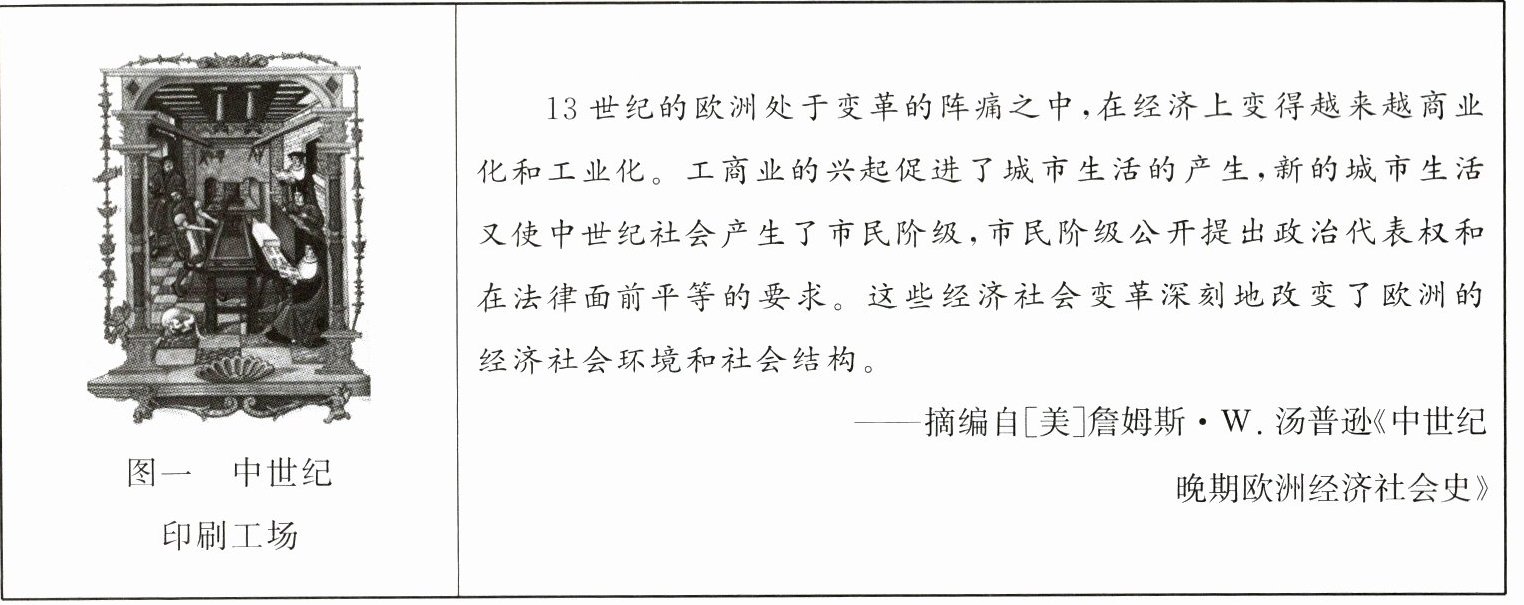 13世纪的欧洲处于变革的阵痛之中,在经济上变得越来越商业
化和工业化。工商业的兴起促进了城市生活的产生,新的城市生活
又使中世纪社会产生了市民阶级,市民阶级公开提出政治代表权和
在法律面前平等的要求。这些经济社会变革深刻地改变了欧洲的
经济社会环境和社会结构。
——摘编自[美]詹姆斯·W.汤普逊《中世纪
晚期欧洲经济社会史》
图一 中世纪
印刷工场